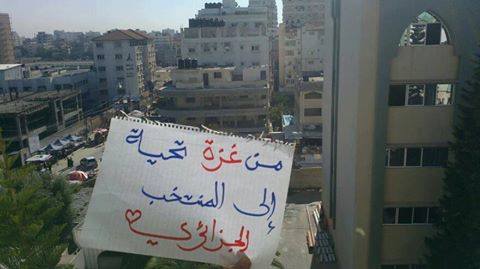 من غزة تحية
إلى المنتخب
الجزائري